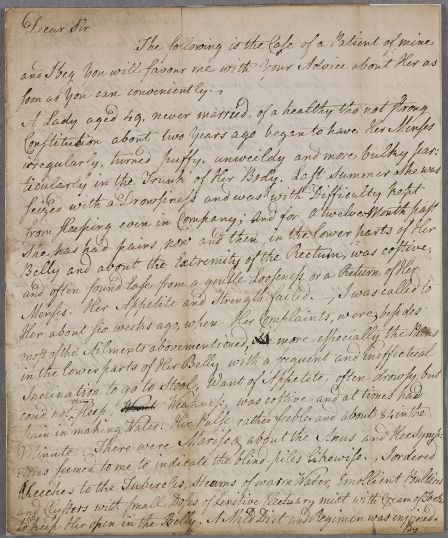 Dear Sir
The following is the Case of a Patient of mine
and I beg You will favour me with Your Advice about Her as
soon as You can conveniently.
A Lady aged 49, never married, of a healthy tho not strong
Constitution about two Years ago began to have Her Menses
irregularly, turned puffy, unweildy and more bulky par:
ticularly in the Trunk of Her Body. Last Summer She was
Seized with a Drowsiness and was with Difficulty kept
from sleeping even in Company; and for a twelve Month past
She has had pains now and then in the lower parts of Her
Belly and about the Extremity of the Rectum, was costive,
and often found Ease from a gentle Looseness or a Return of Her
Menses. Her Appetite and Strength failed. I was called to
Her about six weeks ago, when Her Complaints, were, besides
most of the Ailments abovementioned, more especially the Pains
in the lower parts of Her Belly with a frequent and ineffectual
Inclination to go to Stool, Want of Appetite, often drowsy, but
coud not sleep, Weakness, was costive and at times had
Pain in making Water: Her Pulse rather feeble and about 84 in the
Minute. There were Mariscæ about the Anus and Her Symp:
:toms seemed to me to indicate the blind piles likewise. I ordered
Leeches to the Tubercles, Steams of warm Water, Emollient Poultices
and Clysters with small Doses of Lenitive Electuary mixt with Cream of
to keep Her open in the Belly. A Mild Diet and Regimen was injoined.
By